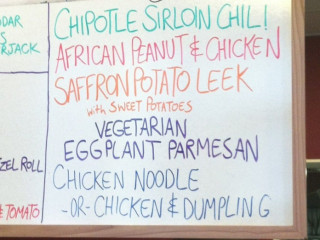 DAR
S
RJACK
ZEL ROLL
& TOMATO
CHIPOTLE SIRLOIN CHIL!
AFRICAN PEANUT & CHICKEN
SAFFRON POTATO LEEK
with SWEET POTATOES
VEGETARIAN
EGGPLANT PARMESAN
CHICKEN NOODLE
-OR- CHICKEN & DUMPLING